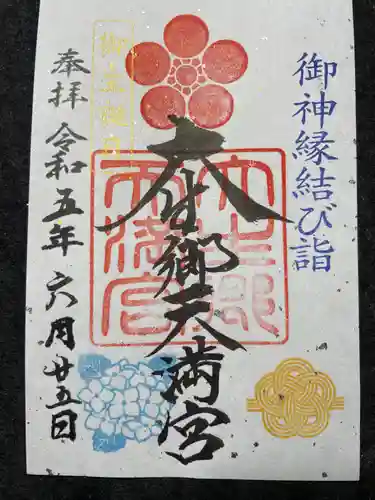 御神縁結び詣
大生郷天満宮
奉拝 令和五年六月廿五日